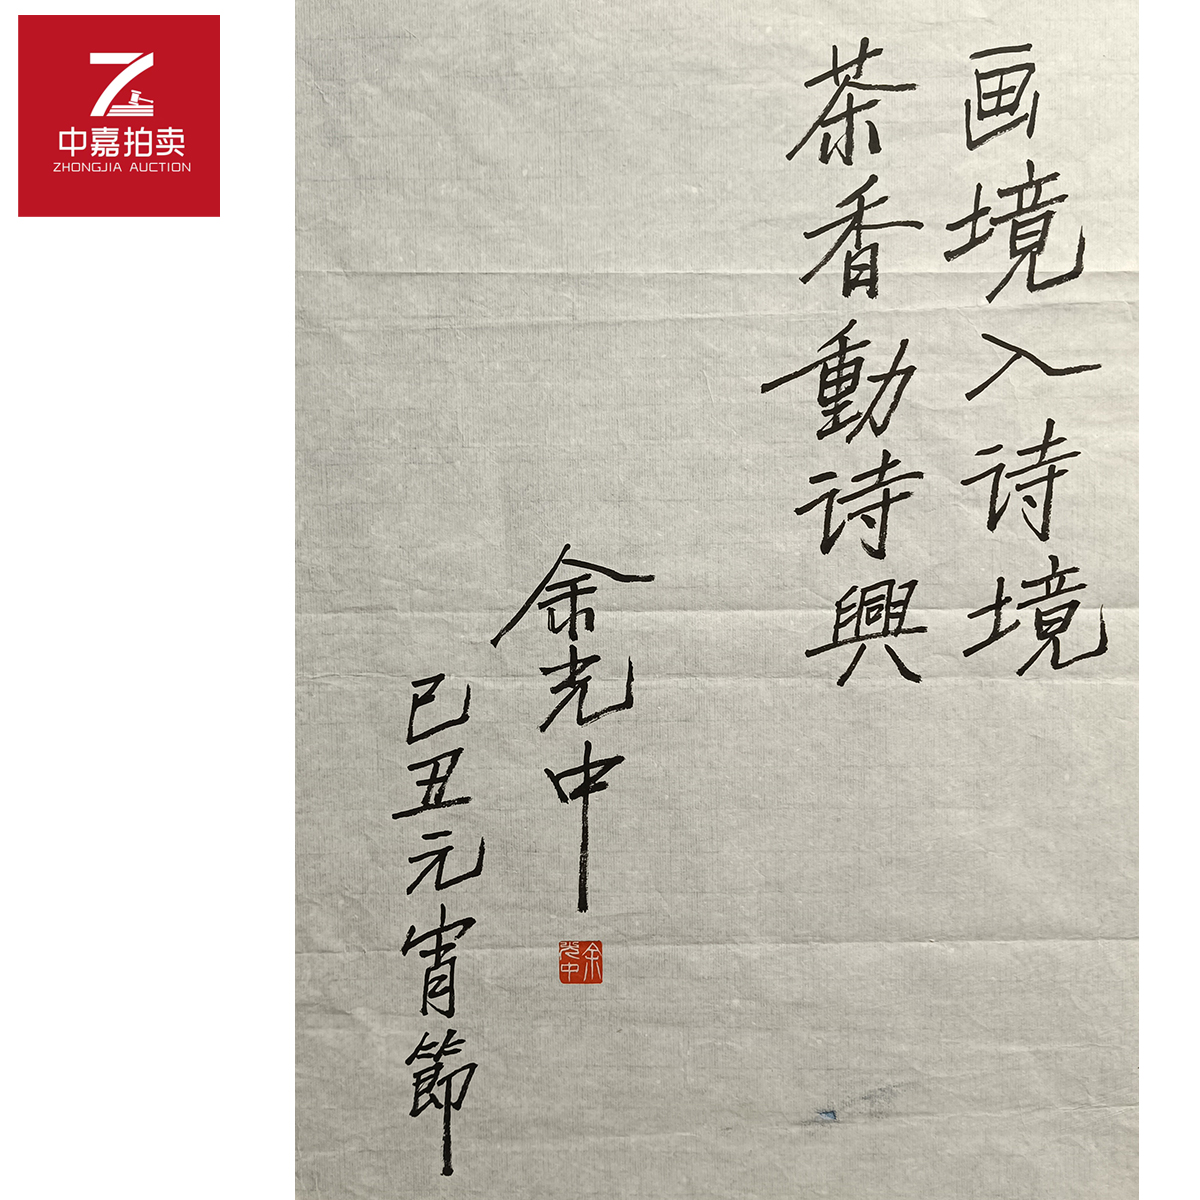 中嘉拍卖
ZHONGJIA AUCTION
画境入诗境
茶香動诗興
余光中
己丑元宵節
余光中